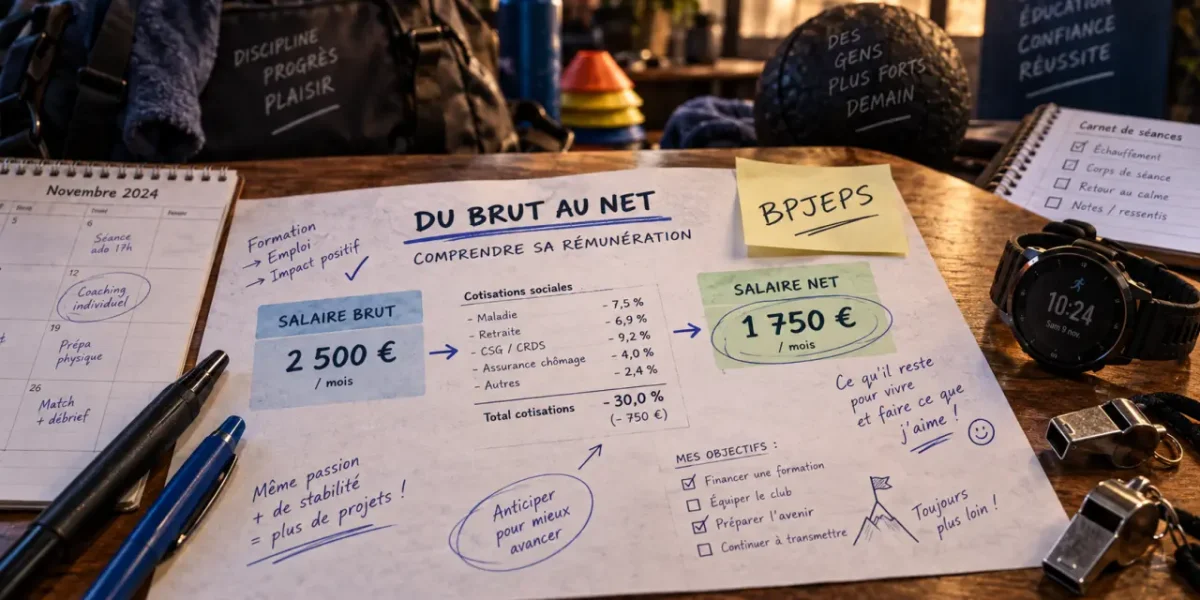 DISCIPLINE
PROGRÈS
PLAISIR
DES
GENS
PLUS FORTS
DEMAIN
ÉDUCATION
CONFIANCE
RÉUSSITE
Carnet de séances
Échauffement
Corps de séance
Retour au calme
Notes / ressentis
Novembre 2024
5
6
Séance
ado 17h
12
Coaching
individuel
19
Prépa
physique
26
Match
+ débrief
Formation
→ Emploi
→ Impact positif
DU BRUT AU NET
COMPRENDRE SA RÉMUNÉRATION
BPJEPS
SALAIRE BRUT
2 500 €
/ mois
Cotisations sociales
- Maladie - 7,5 %
- Retraite - 6,9 %
- CSG / CRDS - 9,2 %
- Assurance chômage - 4,0 %
- Autres - 2,4 %
Total cotisations - 30,0 %
(- 750 €)
SALAIRE NET
1 750 €
/ mois
10:24
Sam 9 nov
Ce qu'il reste
pour vivre
et faire ce que
j'aime !
Même passion
+ de stabilité
= plus de projets !
Anticiper
pour mieux
avancer
MES OBJECTIFS :
Financer une formation
Équiper le club
Préparer l'avenir
Continuer à transmettre
Toujours
plus loin !